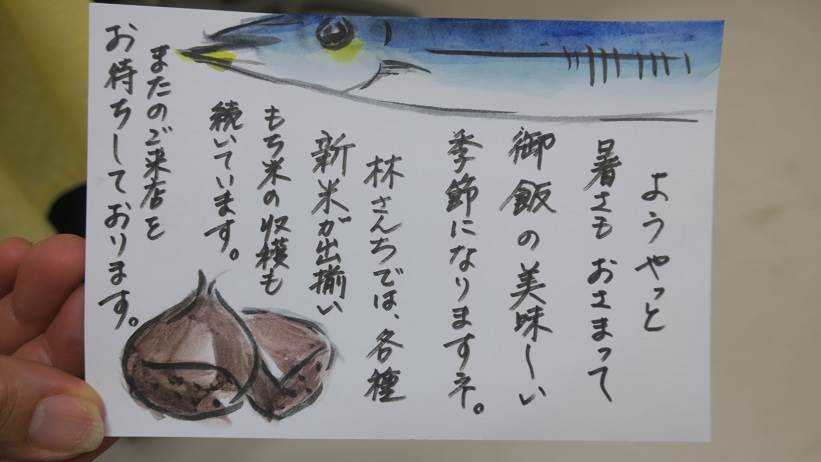 ようやっと
暑さもおさまって
御飯の美味〜い
季節になりますネ。
林さんちでは、各種
新米が出揃い
もち米の収穫も
続いています。
またのご来店を
お待ちしております。